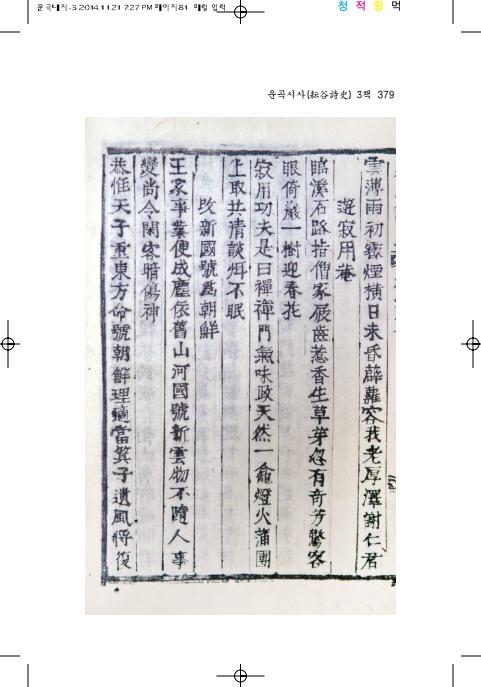 운곡내지-3 2014.11.21 7:27 PM 페이지81 매킬 입력
청 적 황 먹
운곡시사(耘谷詩史) 3책 379
雲薄雨初疎煙橫日未昏薜蘿容我老厚澤謝仁君
遊寂用菴
臨溪石路指僧家屐齒惹香生草芽忽有奇芳驚客
眼倚巖一樹迎春花
寂用功夫是曰禪禪門氣味政天然一龕燈火蒲團
上取共淸談煮不眠
改新國號爲朝鮮
王家事業便成塵依舊山河國號新雲物不隨人事
變尙令閑客暗傷神
恭惟天子重東方命號朝鮮理適當箕子遺風將復